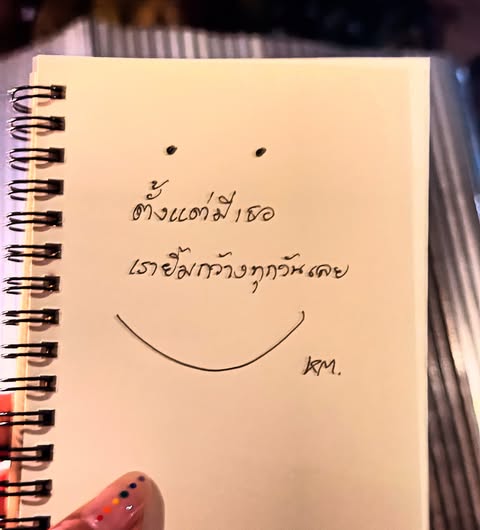 ตั้งแต่มีเธอ
เรายิ้มกว้างทุกวันเลย
KM.